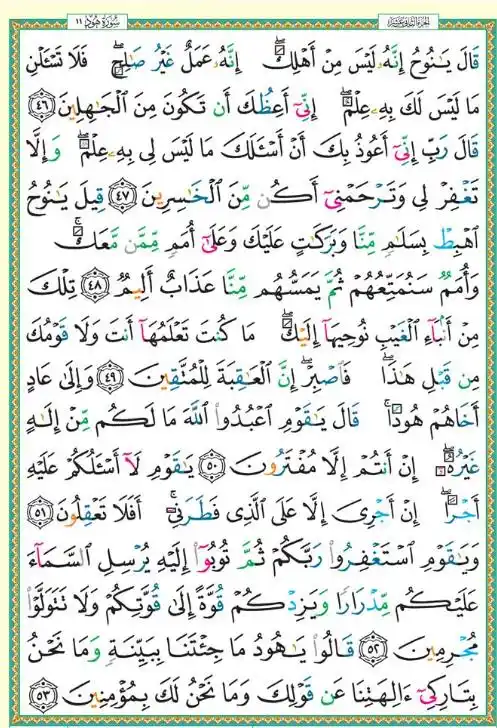 سُورَةُ هُودٍ ١١
الجزء الثاني عشر
قَالَ يَـٰنُوحُ إِنَّهُۥ لَيْسَ مِنْ أَهْلِكَۖ إِنَّهُۥ عَمَلٌ غَيْرُ صَـٰلِحٍۖ فَلَا تَسْـَٔلْنِ
مَا لَيْسَ لَكَ بِهِۦ عِلْمٌۖ إِنِّىٓ أَعِظُكَ أَن تَكُونَ مِنَ ٱلْجَـٰهِلِينَ ﴿٤٦﴾
قَالَ رَبِّ إِنِّىٓ أَعُوذُ بِكَ أَنْ أَسْـَٔلَكَ مَا لَيْسَ لِى بِهِۦ عِلْمٌۖ وَإِلَّا
تَغْفِرْ لِى وَتَرْحَمْنِىٓ أَكُن مِّنَ ٱلْخَـٰسِرِينَ ﴿٤٧﴾ قِيلَ يَـٰنُوحُ
ٱهْبِطْ بِسَلَـٰمٍ مِّنَّا وَبَرَكَـٰتٍ عَلَيْكَ وَعَلَىٰٓ أُمَمٍ مِّمَّن مَّعَكَۚ
وَأُمَمٌ سَنُمَتِّعُهُمْ ثُمَّ يَمَسُّهُم مِّنَّا عَذَابٌ أَلِيمٌ ﴿٤٨﴾ تِلْكَ
مِنْ أَنۢبَآءِ ٱلْغَيْبِ نُوحِيهَآ إِلَيْكَۖ مَا كُنتَ تَعْلَمُهَآ أَنتَ وَلَا قَوْمُكَ
مِن قَبْلِ هَـٰذَاۖ فَٱصْبِرْۖ إِنَّ ٱلْعَـٰقِبَةَ لِلْمُتَّقِينَ ﴿٤٩﴾ وَإِلَىٰ عَادٍ
أَخَاهُمْ هُودًاۚ قَالَ يَـٰقَوْمِ ٱعْبُدُوا۟ ٱللَّهَ مَا لَكُم مِّنْ إِلَـٰهٍ
غَيْرُهُۥٓۖ إِنْ أَنتُمْ إِلَّا مُفْتَرُونَ ﴿٥٠﴾ يَـٰقَوْمِ لَآ أَسْـَٔلُكُمْ عَلَيْهِ
أَجْرًاۖ إِنْ أَجْرِىَ إِلَّا عَلَى ٱلَّذِى فَطَرَنِىٓۚ أَفَلَا تَعْقِلُونَ ﴿٥١﴾
وَيَـٰقَوْمِ ٱسْتَغْفِرُوا۟ رَبَّكُمْ ثُمَّ تُوبُوٓا۟ إِلَيْهِ يُرْسِلِ ٱلسَّمَآءَ
عَلَيْكُم مِّدْرَارًا وَيَزِدْكُمْ قُوَّةً إِلَىٰ قُوَّتِكُمْ وَلَا تَتَوَلَّوْا۟
مُجْرِمِينَ ﴿٥٢﴾ قَالُوا۟ يَـٰهُودُ مَا جِئْتَنَا بِبَيِّنَةٍ وَمَا نَحْنُ
بِتَارِكِىٓ ءَالِهَتِنَا عَن قَوْلِكَ وَمَا نَحْنُ لَكَ بِمُؤْمِنِينَ ﴿٥٣﴾